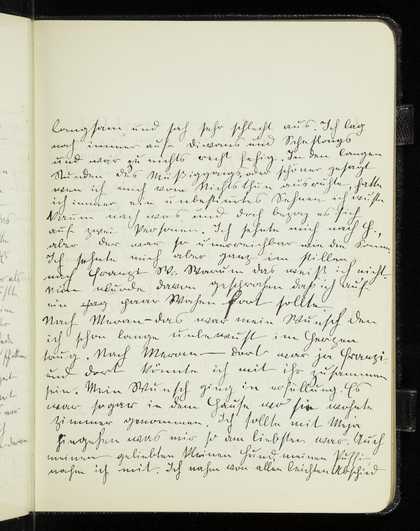 langsam und sah sehr schlecht aus. Ich lag
noch immer auf Diwans und Schaslongs
und war zu nichts recht fähig. In den langen
Stunden des Müßiggangs oder schöner gesagt
wen ich mich von Nichtsthun ausruhte, hatte
ich immer ein unbestimtes Sehnen ich wuste
kaum nach was und doch bezog es sich
auf zwei Personen. Ich sehnte mich nach G.,
aber der war so unerreichbar wie die Sonne.
Ich sehnte mich aber ganz im stillen
nach Franzi W. Warum das weiß ich nicht.
Nun wurde davon gesprochen daß ich auf
ein paar Wochen fort sollte.
Nach Meran – das war mein Wunsch den
ich schon lange unbewust im Herzen
trug. Nach Meran — dort war ja Franzi
und dort könnte ich mit ihr zusammen
sein. Mein Wunsch ging in erfüllung. Es
war sogar in dem Hause wo sie wohnte
Zimmer genommen. Ich sollte mit
hingehen was mir so am liebsten war. Auch
meinen geliebten kleinen Hund, meinen
nahm ich mit. Ich nahm von allen leichten Abschied